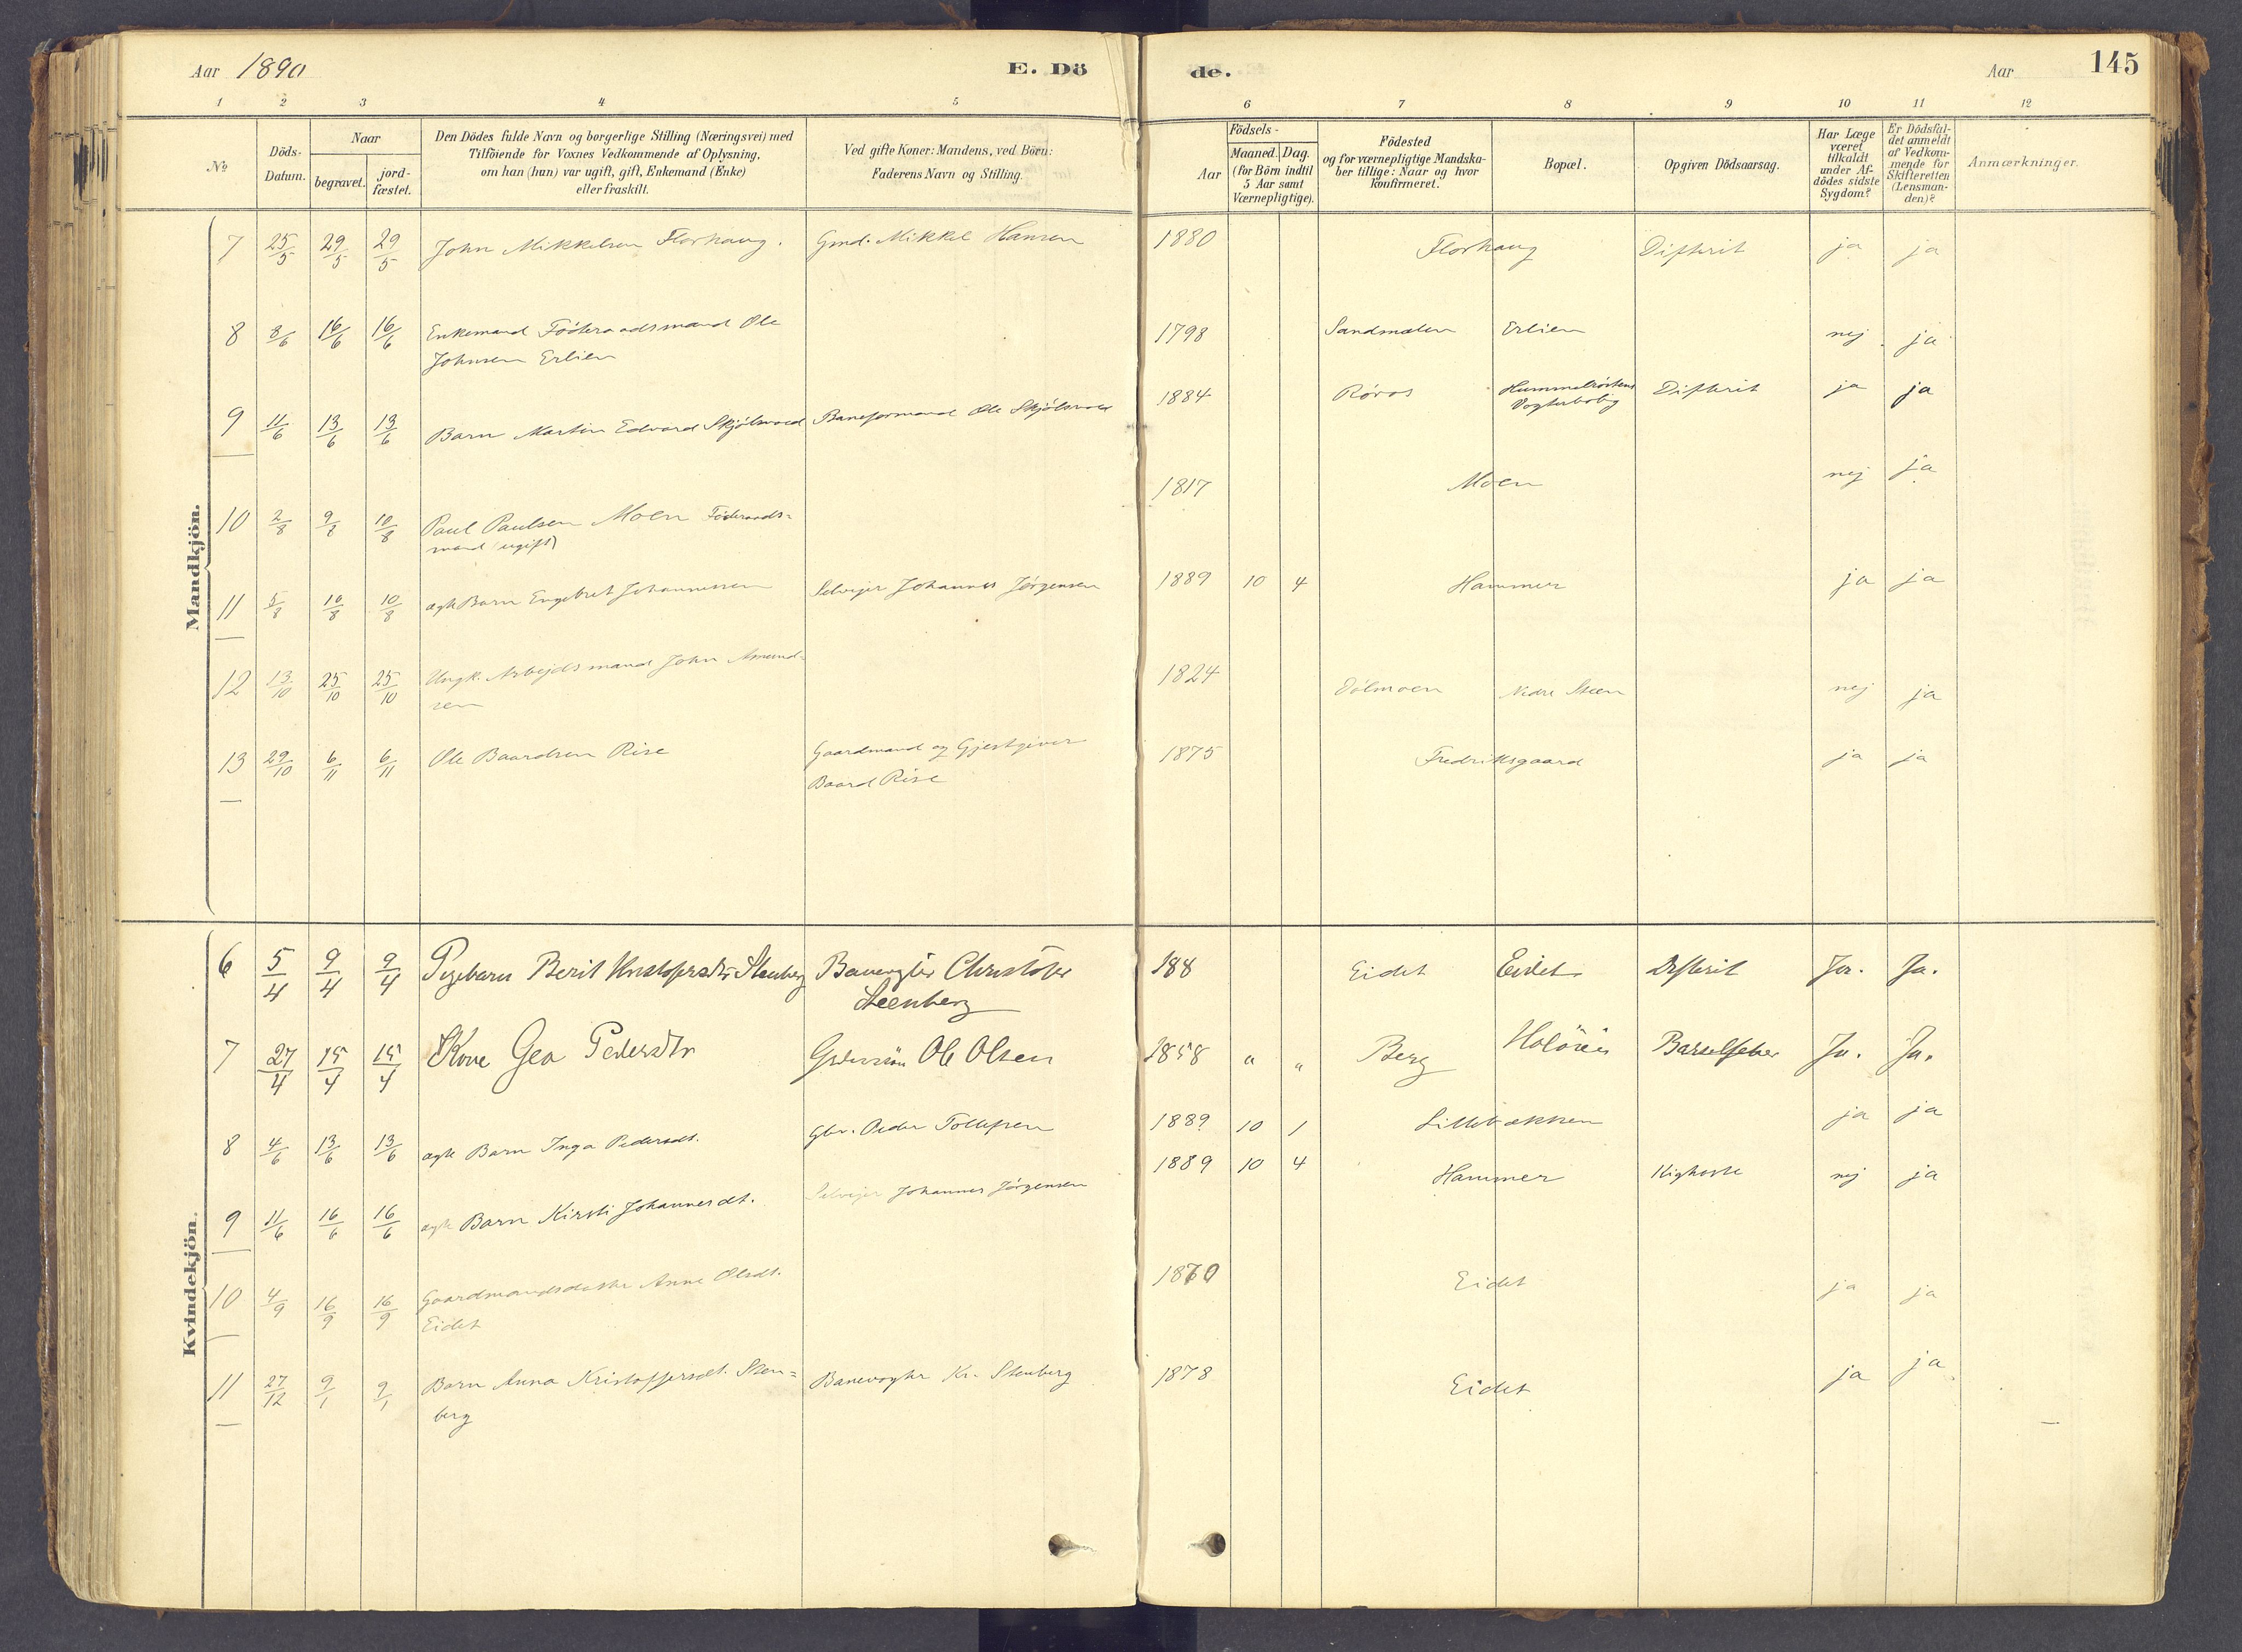 Aar 1890
E. Dö
de.
Aar
145
1 2 3 4 5 6 7 8 9 10 11 12
No
Döds-
Datum.
Naar
begravet.
jord-
fæstet.
Den Dödes fulde Navn og borgerlige Stilling (Næringsvei) med
Tilföiende for Voxnes Vedkommende af Oplysning,
om han (hun) var ugift, gift, Enkemand (Enke)
eller fraskilt.
Ved gifte Koner: Mandens, ved Börn:
Faderens Navn og Stilling.
Födsels-
Aar
Maaned. Dag.
(for Börn indtil
5 Aar samt
Værnepligtige).
Födested
og for værnepligtige Mandska-
ber tillige: Naar og hvor
konfirmeret.
Bopæl.
Opgiven Dödsaarsag.
Har Læge
været
tilkaldt
under Af-
dödes sidste
Sygdom?
Er Dödsfal-
det anmeldt
af Vedkom-
mende for
Skifteretten
(Lensman-
den)?
Anmærkninger.
Mandkjön.
7 25/5 29/5 29/5 John Mikkelsen Florhaug. Gmd. Mikkel Hansen 1880 Florhaug Difterit ja ja
8 8/6 16/6 16/6 Enkemand Föderaadsmand Ole 1798 Sandmælen Erlien nej ja
Johnsen Erlien
9 11/6 13/6 13/6 Barn Martin Edvard Skjölsvold Baneformand Ole Skjölsvold 1884 Röros Difterit ja ja
Vogterbolig
10 2/8 9/8 10/8 Paul Paulsen Moen Föderaads- 1817 Moen nej ja
mand (ugift)
11 5/8 10/8 10/8 ægte Barn Engebret Johannessen Selveier Johannes Jörgensen 1889 10 4 Hammer ja ja
12 13/10 25/10 25/10 Ungk. Arbejdsmand John Amund- 1824 Dölmoen Nedre Steen nej ja
sen
13 29/10 6/11 6/11 Ole Baardsen Rise Gaardmand og Gjestgiver 1875 Fredriksgaard ja ja
Baard Rise
Kvindekjön.
6 5/4 9/4 9/4 Pigebarn Berit Kristofersdtr Stenberg Banevogter Christofer 188 Eidet Eidet Difterit Ja. Ja.
Steenberg
7 27/4 15/4 15/4 Kone Gea Pedersdtr Ole Olsen 1858 " " Berg Barselfeber Ja. Ja.
8 4/6 13/6 13/6 ægte Barn Inga Pedersdt. Gbr. Peder Tollefsen 1889 10 1 Lillebækken ja ja
9 11/6 16/6 16/6 ægte Barn Kirsti Johannesdt. Selveier Johannes Jörgensen 1889 10 4 Hammer Kighoste nej ja
10 4/9 16/9 16/9 Gaardmandsdatter Anne Olsdt. 1870 Eidet ja ja
Eidet
11 27/12 9/1 9/1 Barn Anna Kristoffersdt. Sten- Banevogter Kr. Stenberg 1878 Eidet ja ja
berg